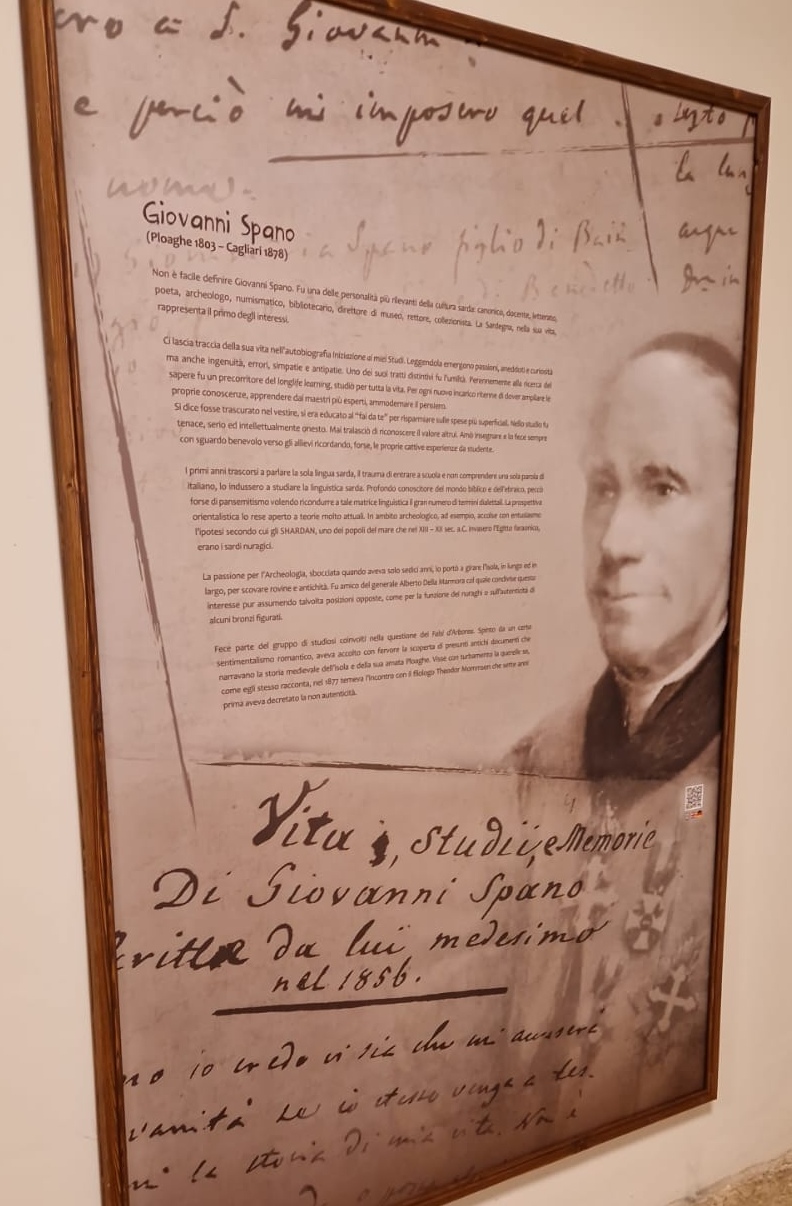 ero a S. Giovanni
e perciò mi imposero quel
nome.
Spano figlio di
di Benedetto
la
Giovanni Spano
(Ploaghe 1803 – Cagliari 1878)
Non è facile definire Giovanni Spano. Fu una delle personalità più rilevanti della cultura sarda: canonico, docente, letterato,
poeta, archeologo, numismatico, bibliotecario, direttore di museo, rettore, collezionista. La Sardegna, nella sua vita,
rappresenta il primo degli interessi.
Ci lascia traccia della sua vita nell'autobiografia Iniziazione ai miei Studi. Leggendola emergono passioni, aneddoti e curiosità
ma anche ingenuità, errori, simpatie e antipatie. Uno dei suoi tratti distintivi fu l'umiltà. Perennemente alla ricerca del
sapere fu un precorritore del longlife learning, studiò per tutta la vita. Per ogni nuovo incarico ritenne di dover ampliare le
proprie conoscenze, apprendere dai maestri più esperti, ammodernare il pensiero.
Si dice fosse trascurato nel vestire, si era educato al "fai da te" per risparmiare sulle spese più superficiali. Nello studio fu
tenace, serio ed intellettualmente onesto. Mai tralasciò di riconoscere il valore altrui. Amò insegnare e lo fece sempre
con sguardo benevolo verso gli allievi ricordando, forse, le proprie cattive esperienze da studente.
I primi anni trascorsi a parlare la sola lingua sarda, il trauma di entrare a scuola e non comprendere una sola parola di
italiano, lo indussero a studiare la linguistica sarda. Profondo conoscitore del mondo biblico e dell'ebraico, peccò
forse di pansemitismo volendo ricondurre a tale matrice linguistica il gran numero di termini dialettali. La prospettiva
orientalistica lo rese aperto a teorie molto attuali. In ambito archeologico, ad esempio, accolse con entusiasmo
l'ipotesi secondo cui gli SHARDAN, uno dei popoli del mare che nel XIII – XII sec. a.C. invasero l'Egitto faraonico,
erano i sardi nuragici.
La passione per l'Archeologia, sbocciata quando aveva solo sedici anni, lo portò a girare l'isola, in lungo ed in
largo, per scovare rovine e antichità. Fu amico del generale Alberto Della Marmora col quale condivise questo
interesse pur assumendo talvolta posizioni opposte, come per la funzione dei nuraghi o sull'autenticità di
alcuni bronzi figurati.
Fece parte del gruppo di studiosi coinvolti nella questione dei Falsi d'Arborea. Spinto da un certo
sentimentalismo romantico, aveva accolto con fervore la scoperta di presunti antichi documenti che
narravano la storia medievale dell'isola e della sua amata Ploaghe. Visse con turbamento la querelle se,
come egli stesso racconta, nel 1877 temeva l'incontro con il filologo Theodor Mommsen che sette anni
prima aveva decretato la non autenticità.
Vita, studii, e Memorie
Di Giovanni Spano
Scritte da lui medesimo
nel 1856.
no io credo vi sia che mi
vanità se io stesso venga a
la storia di mia vita. Non è